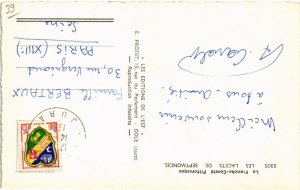 39
La Franche-Comté Pittoresque
3305 LES LACETS DE SEPTMONCEL
Meilleur souvenir
à tous. Amitiés.
"LES EDITIONS DE L'EST"
E. PROTET, 59, rue du Parlement - DOLE (Jura)
— Reproduction Interdite —
Famille BERTAUX
30, rue Vergniaud
PARIS (XIIIe)
Seine
JURA